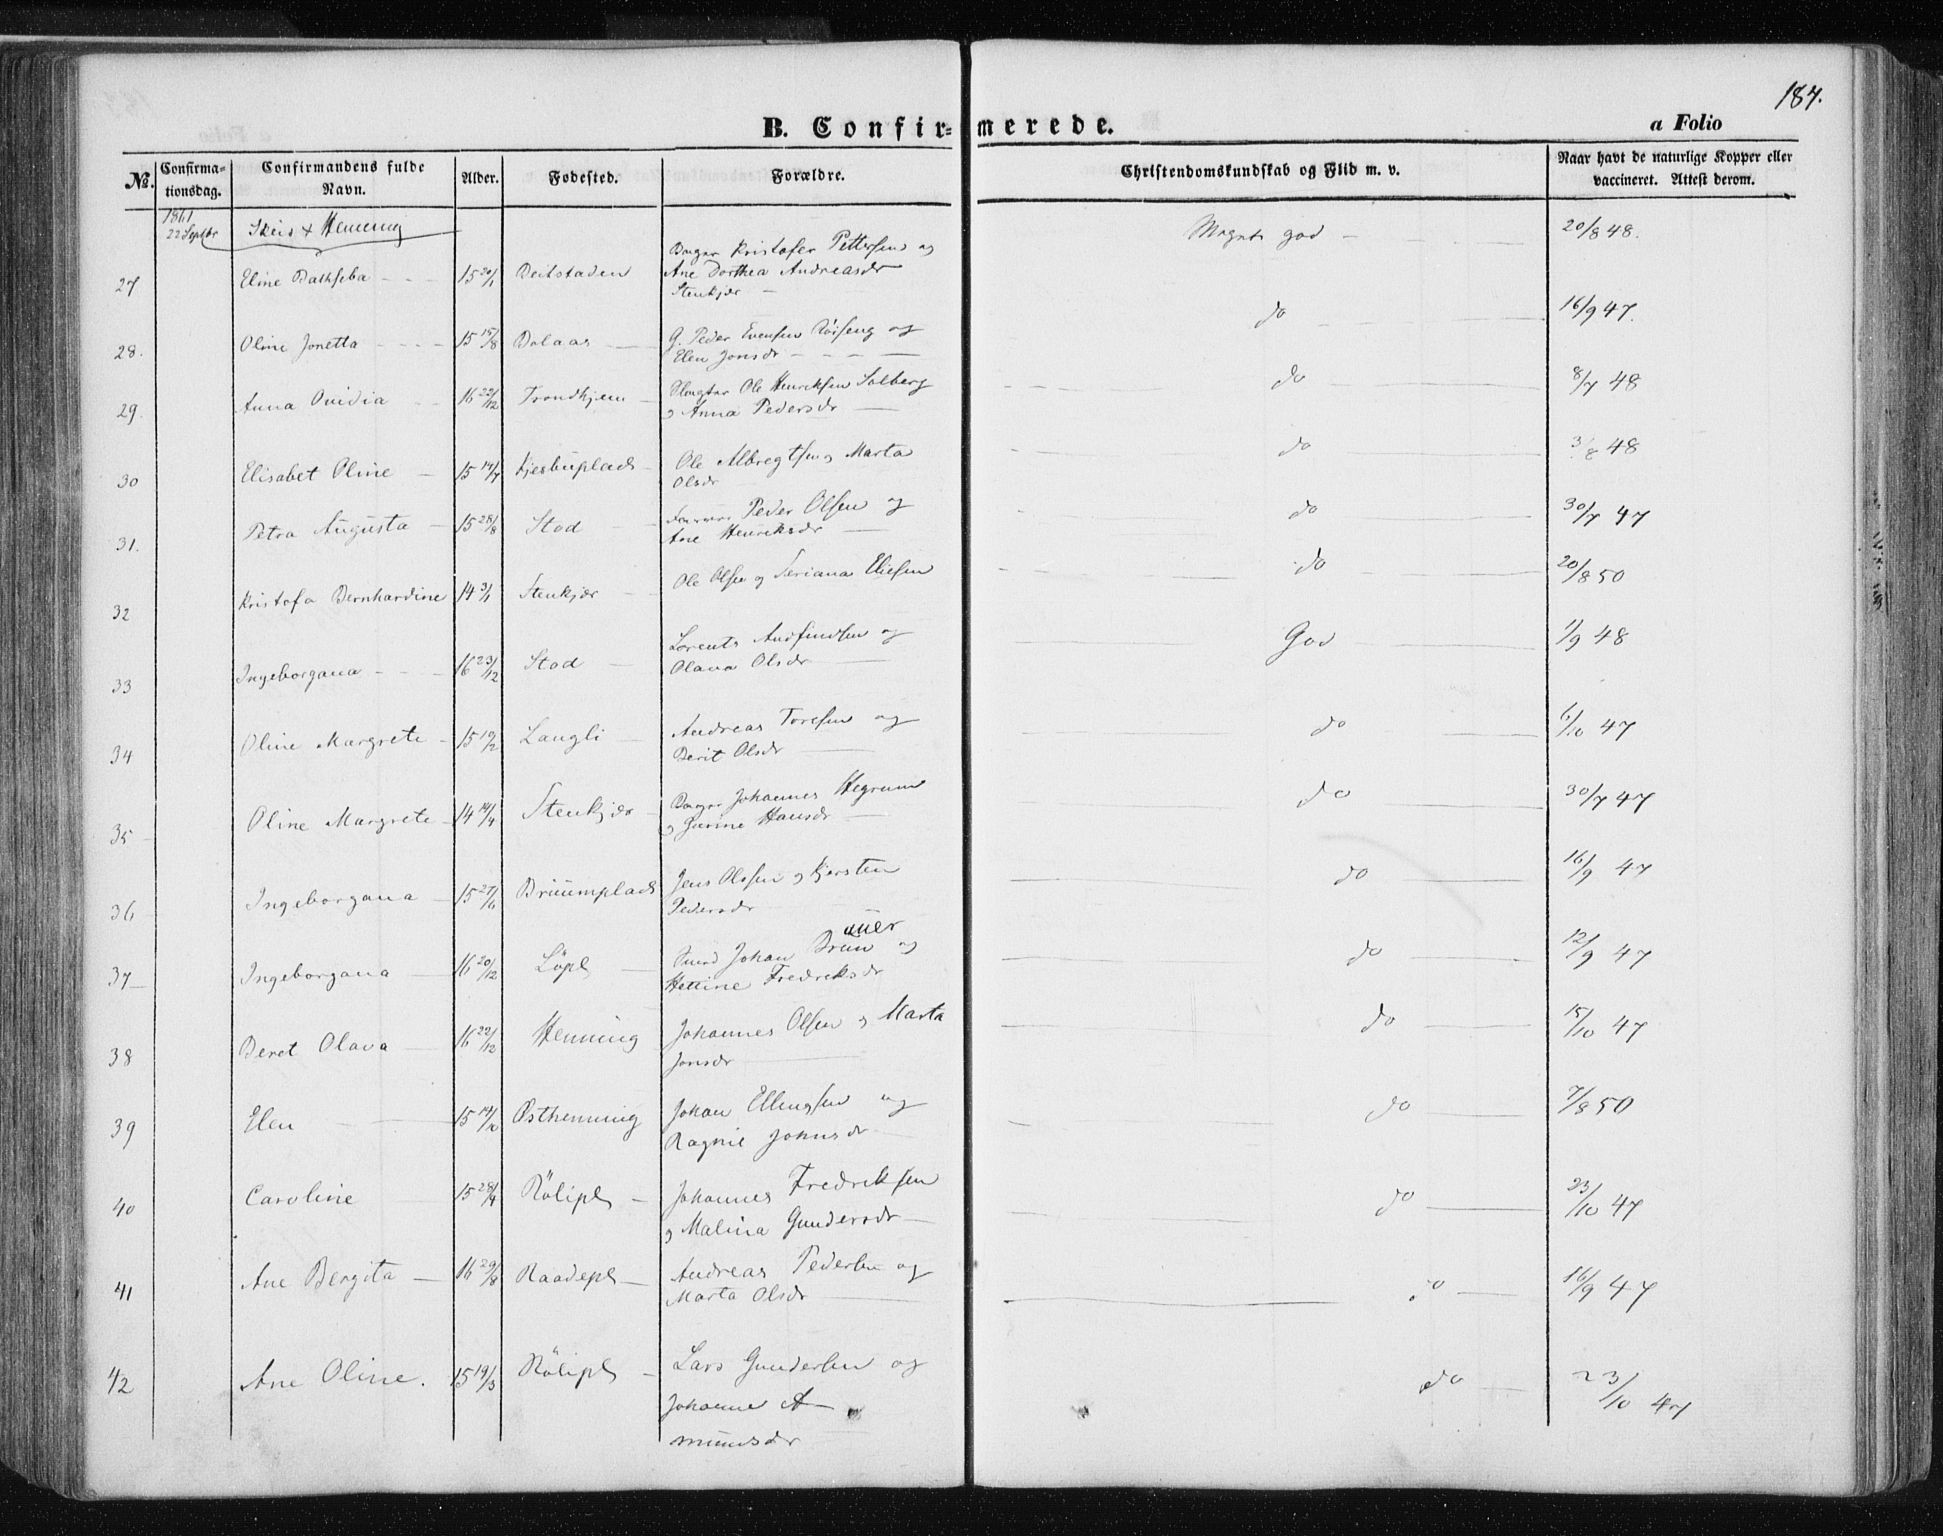 187.
B. Confir= merede. a Folio
No. Confirma-tionsdag. Confirmandens fulde Navn. Alder. Fødested. Forældre. Christendomskundskab og Flid m. v. Naar havt de naturlige Kopper eller vaccineret. Attest derom.
1861
22 Septbr Skeis + Henning
27 Eline Bathseba 15 20/1 Beitstaden Borger Kristofer Pettersen og Ane Dorthea Andreasdr Stenkjær Meget god 20/8 48.
28. Oline Jonetta 15 15/8 Bolaas G. Peder Evensen Röiseng og Elen Jonsdr do 16/9 47.
29. Anna Ovidia 16 22/12 Trondhjem Slagter Ole Henriksen Solberg og Anna Pedersdr do 8/7 48
30 Elisabet Oline 15 14/7 Kjesbuplads Ole Albregtsen og Marta Olsdr do 3/8 48
31. Petra Augusta 15 28/8 Stod Peder Olsen og Ane Henriksdr do 30/7 47
32 Kristofa Bernhardine 14 3/1 Stenkjær Ole Olsen og Seriana Eliesen do 20/8 50
33 Ingeborgana 16 23/12 Stod Lorents Andfindsen og Olava Olsdr God 1/9 48
34 Oline Margrete 15 19/2 Langli Andreas Toresen og Berit Olsdr do 6/10 47
35 Oline Margrete 14 14/4 Stenkjær Borger Johannes Hegrum og Hansdr do 30/7 47
36 Ingeborgana 15 27/6 Bruumplads Jens Olsen og Kjersten Pedersdr do 16/9 47
37 Ingeborgana 16 20/12 Löpl Smed Johan Brun og Hettine Fredriksdr do 12/9 47
38 Beret Olava 16 22/12 Henning Johannes Olsen og Marta Jonsdr do 15/10 47
39 Elen 15 14/10 Östhenning Johan Ellingsen og Ragnil Johnsdr do 7/8 50
40 Caroline 15 28/4 Rölipl Johannes Fredriksen og Malina Gundersdr do 23/10 47
41 Ane Bergita 16 29/8 Raadepl Andreas Pedersen og Marta Olsdr do 16/9 47
42 Ane Oline. 15 19/3 Rölipl Lars Gundersen og Johanne Amundsdr do 23/10 47